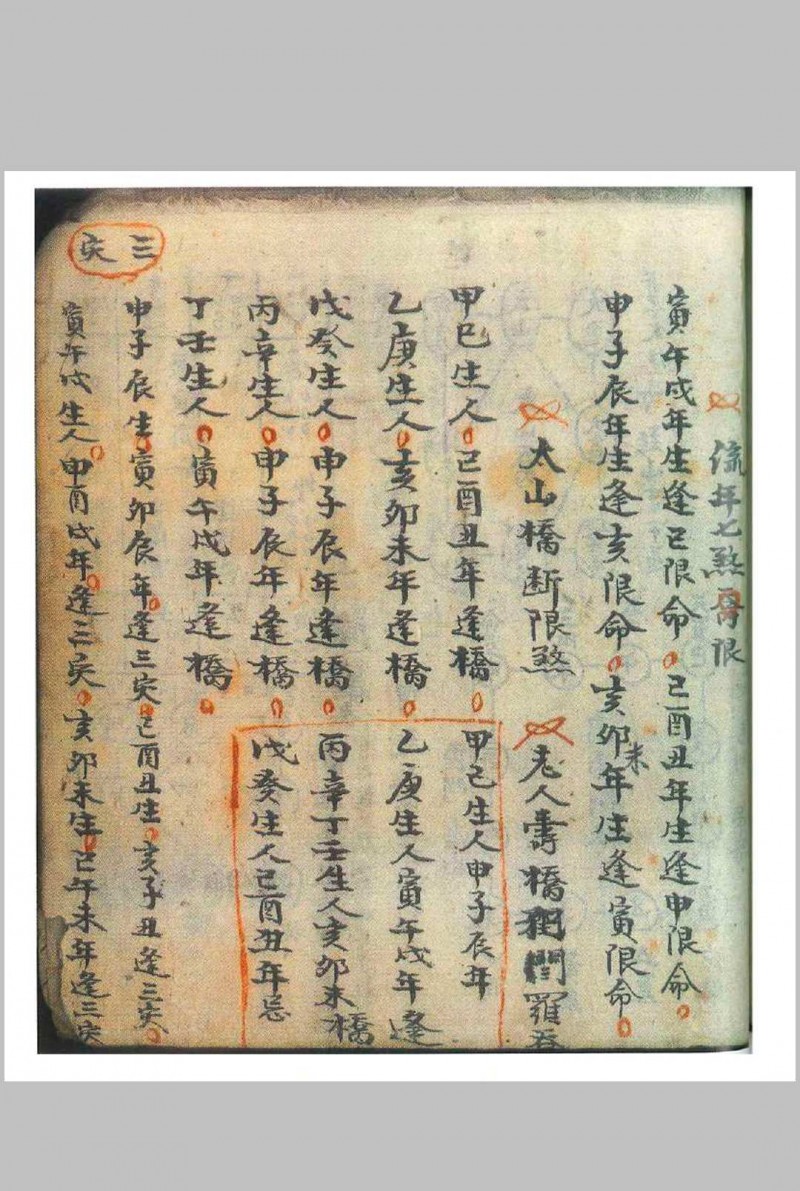 流年七煞限
寅午戌年生逢巳限命巳酉丑年生逢申限命
申子辰年生逢亥限命亥卯未年生逢寅限命
太山橋断限煞
老人壽橋羅
甲己生人巳酉丑年逢橋
乙庚生人亥卯未年逢橋
戊癸生人申子辰年逢橋
丙辛生人申子辰年逢橋
丁壬生人寅午戌年逢橋
甲己生人申子辰年
乙庚生人寅午戌年逢
丙辛丁壬生人亥卯未橋
戊癸生人巳酉丑年忌
三灾
申子辰生寅卯辰年逢三灾巳酉丑生亥子丑逢三灾
寅午戌生人申酉戌年逢三灾亥卯未生巳午未年逢三灾